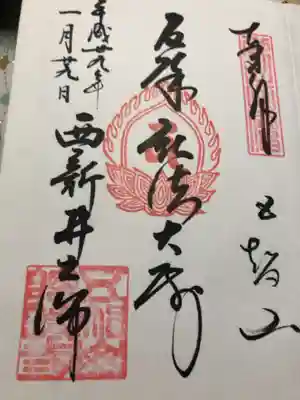 五智山
厄除 弘法大師
西新井大師
平成廿九年
一月廿九日